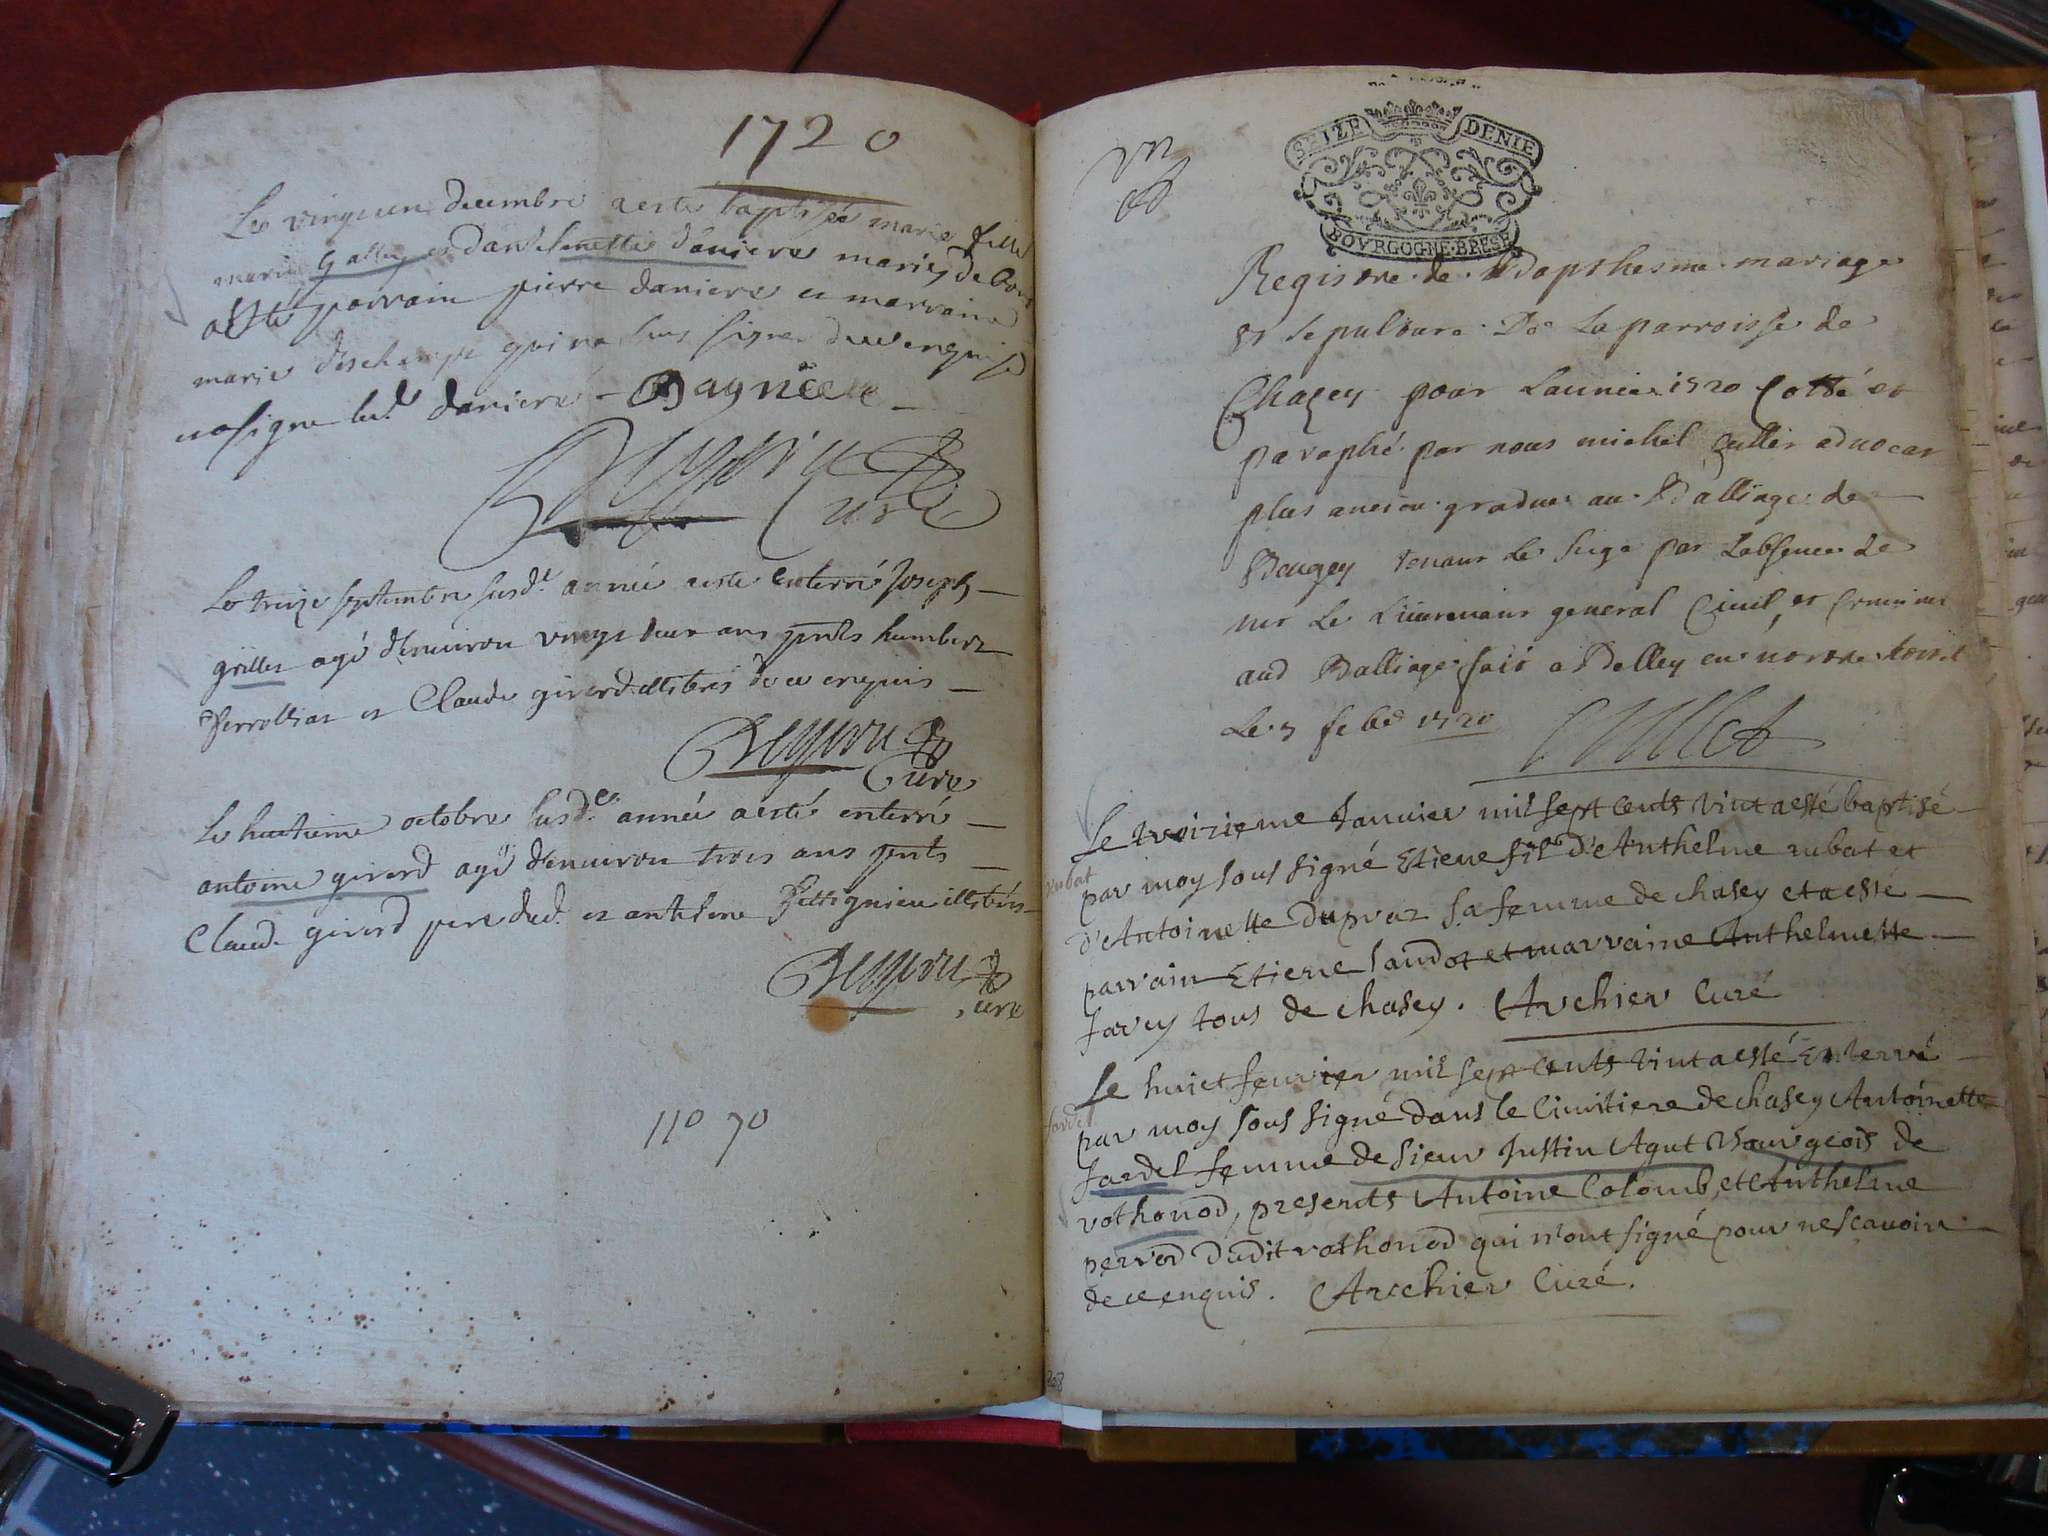 1720
Le vingt un decembre a esté baptisée marie fille
marie daniere mariés de
a esté parrain pierre daniere et marraine
marie deschamps qui na sceu signer de ce enquise
a signé led. daniere - Bagnieu
Curé
Le treize septembre susd.e année a esté enterré Joseph
grillet agé d'environ vingt deux ans pnts humbert
et Claude girerd illitrés de ce enquis
Curé
Le huitieme octobre susd.e année a esté enterré
antoine girerd agé d'environ trois ans pnts
Claude girerd pere dud. et antelme illitrés
Curé
110 70
SEIZE DENIE
BOVRGOGNE·BRESE
Registre de Bapthesme mariage
et sepulture De La parroisse de
Chazey pour L'année 1720 Cotté et
paraphé par nous michel Cullet advocat
plus ancien gradué au Balliage de
Bougey tenant Le siege par Labsence de
mr Le Lieutenant general Civil et Criminel
aud Balliage fait a Belley en nostre hotel
Le 5 feb. 1720 Cullet
Le troizieme Janvier mil sept cents vint a esté baptisé
rubat
par moy sous signé Etiene fils d'Anthelme rubat et
d'Antoinette Dupraz sa femme de chasey et a esté
parrain Etiene Jandot et marraine Anthelmette
Jarcy tous de chasey. Archier Curé
Le huict feuvrier mil sept cents vint a esté Enterré
Jardel
par moy sous signé dans le Cimitiere de chasey Antoinette
Jardel femme de sieur Justin Agut Bourgeois de
vothonod, presents Antoine Colomb, et Anthelme
perrod dudit vothonod qui n'ont signé pour ne scavoir
de ce enquis. Archier Curé.
208